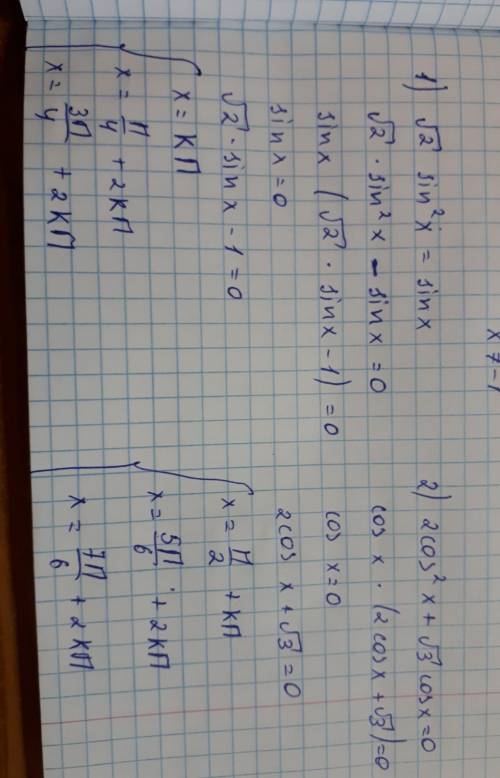 x 7 - 1
1) √2 sin²x = sin x
√2 · sin²x - sin x = 0
sin x (√2 · sin x - 1) = 0
sin x = 0
√2 · sin x - 1 = 0
x = КП
x = П/4 + 2КП
x = 3П/4 + 2КП
2) 2cos²x + √3 cos x = 0
cos x · (2cos x + √3) = 0
cos x = 0
2cos x + √3 = 0
x = П/2 + КП
x = 5П/6 + 2КП
x = 7П/6 + 2КП